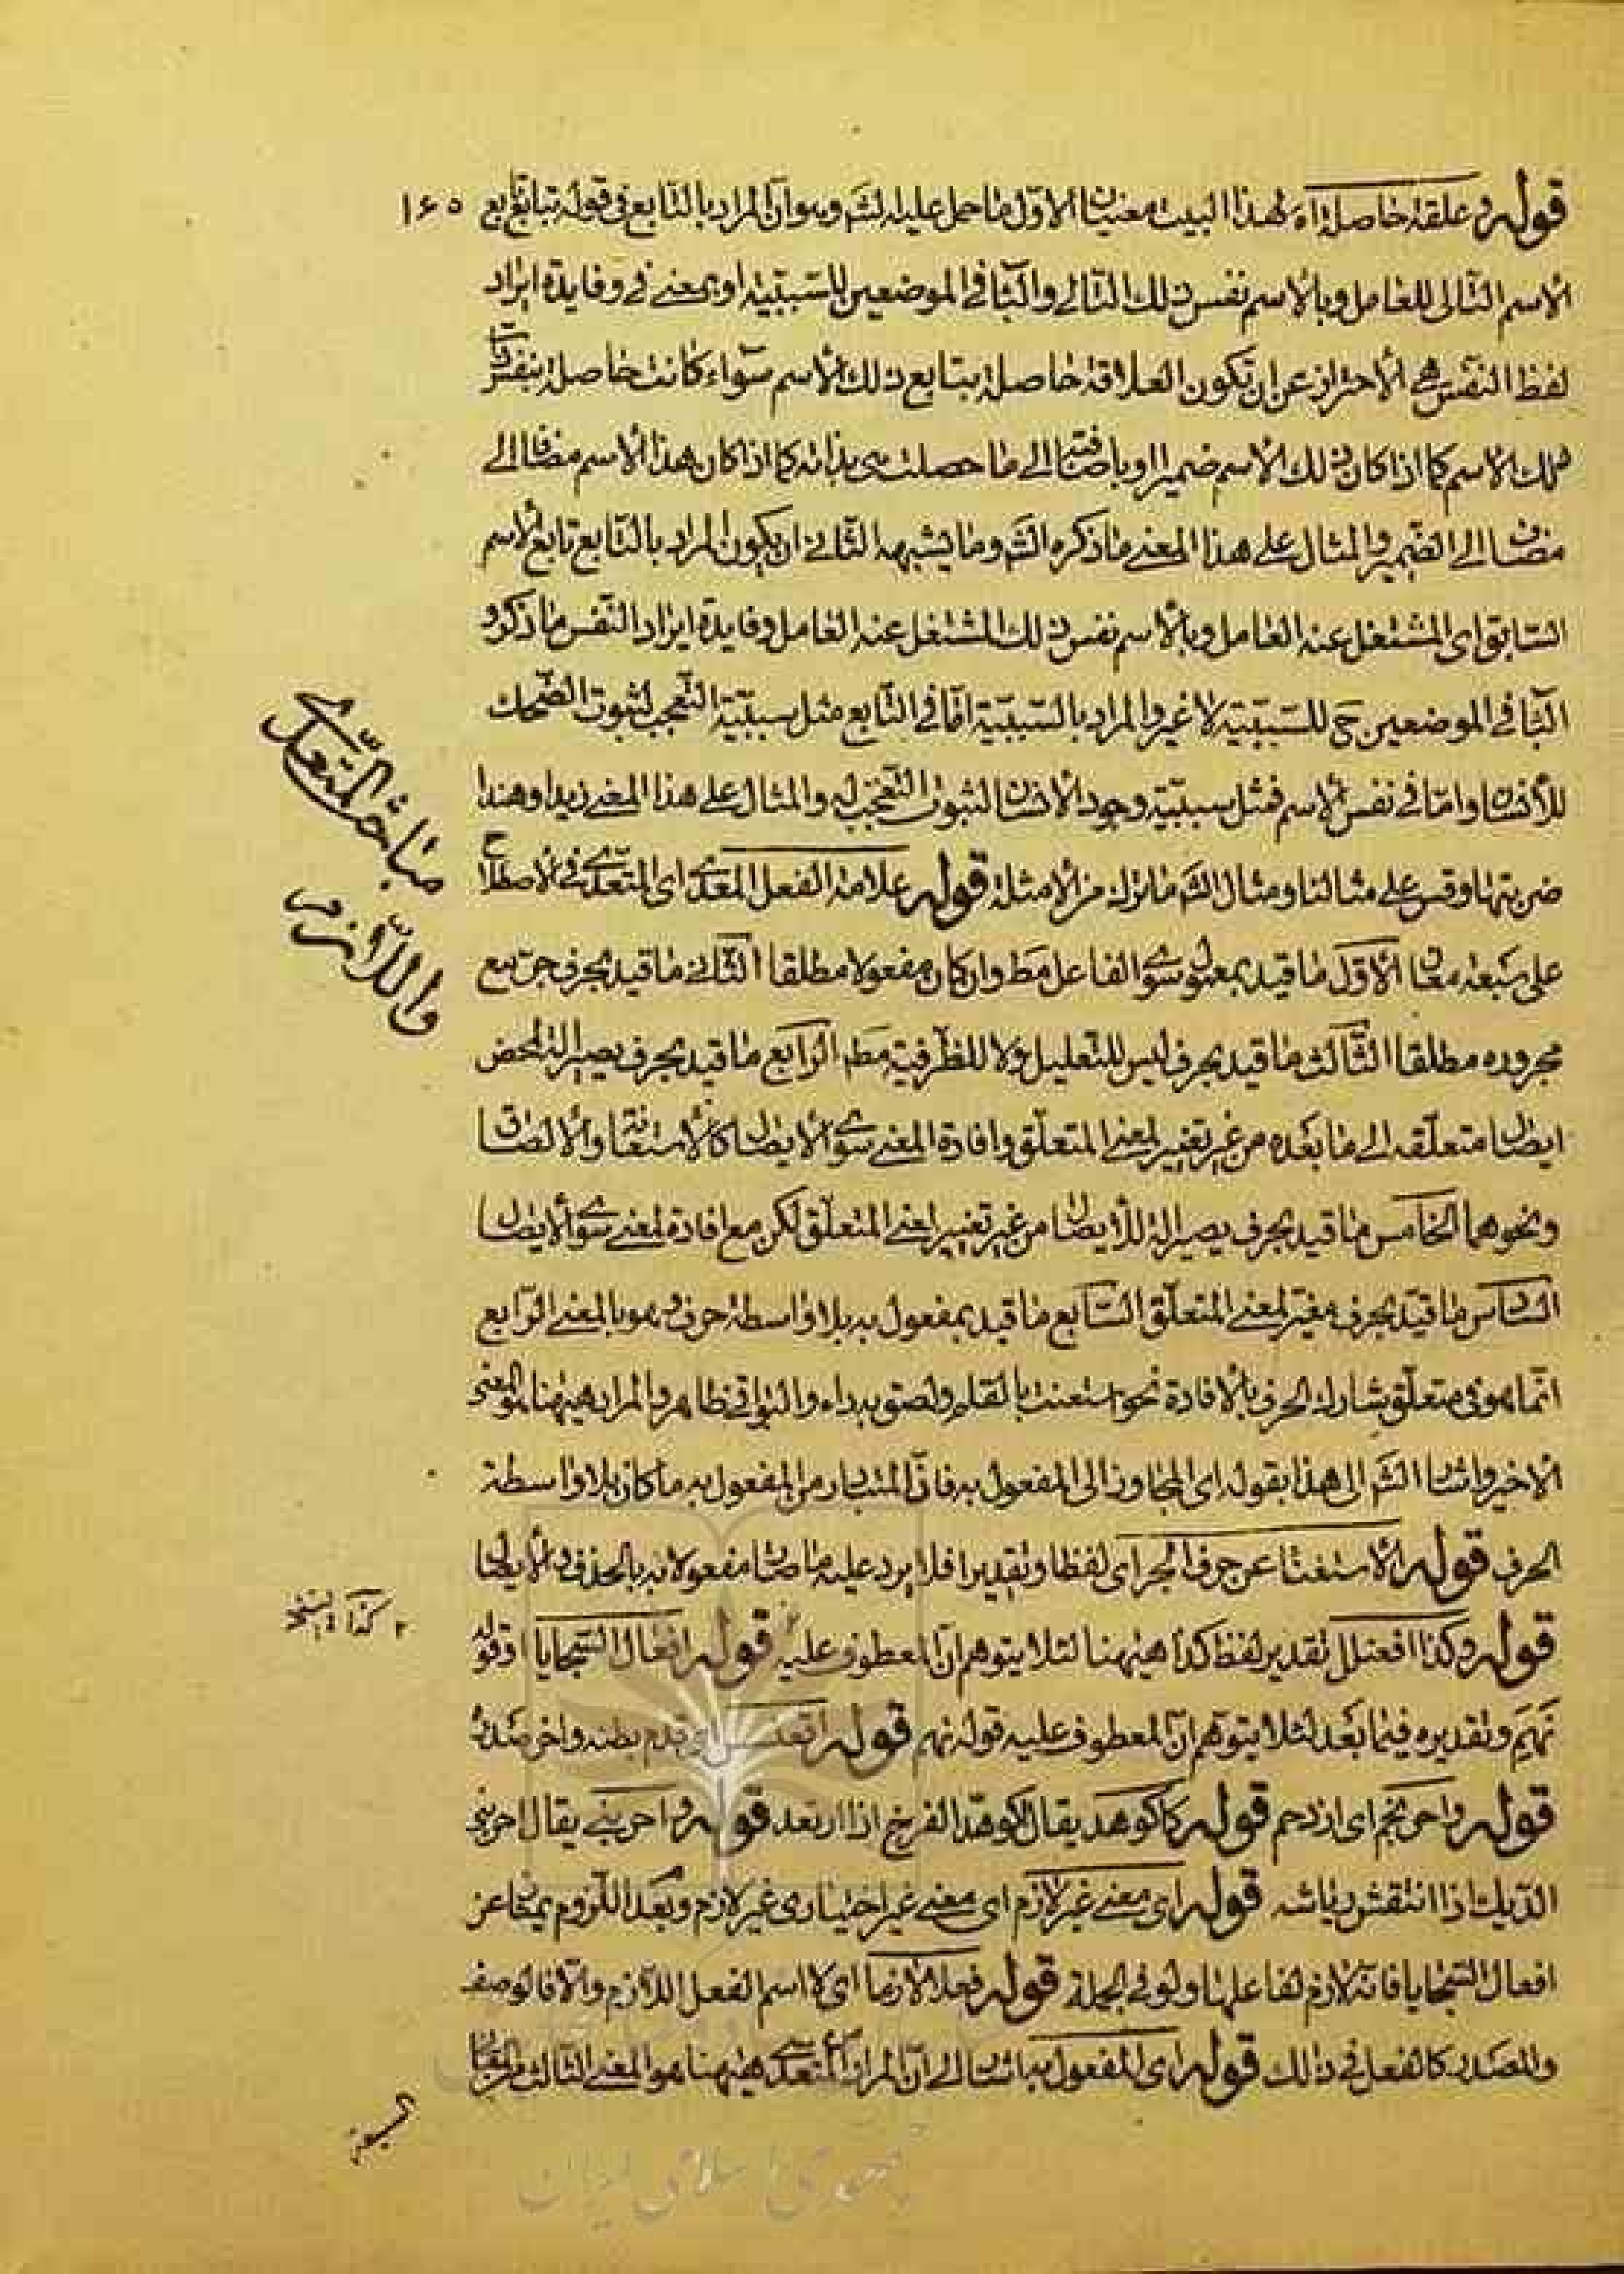 قوله وعلقة حاصلة اه لهذا البيت معنيان الاوّل ما حمل عليه الشم وهو ان المراد بالتابع فى قوله بتابع تابع
۱۶۵
الاسم التالى للعامل وبالاسم نفس ذلك التالى والبا فى الموضعين للسببيّة او بمعنى فى وفايدة ايراد
لفظ النفس هى الاحتراز عن ان تكون العلاقة حاصلة بتابع ذلك الاسم سواء كانت حاصلة بنفس
ذلك الاسم كما اذا كان ذلك الاسم ضميرا او باضافته الى ما حصلت هى بذاته كما اذا كان هذا الاسم مضافا الى
مضاف الى الضمير والمثال على هذا المعنى ما ذكره الشم وما يشبهه الثانى ان يكون المراد بالتابع تابع الاسم
السابق اى المشتغل عنه العامل وبالاسم نفس ذلك المشتغل عنه العامل وفايدة ايراد النفس ما ذكر و
البا فى الموضعين ح للسببيّة لا غير والمراد بالسببيّة امّا فى التابع مثل سببيّة التعجب لثبوت الضحك
للانسان وامّا فى نفس الاسم فمثل سببيّة وجود الانسان لثبوت التعجب له والمثال على هذا المعنى زيدا وهندا
ضربتها وقس على مثالنا ومثال الشم ما تراه من الامثلة قوله علامة الفعل المعدّى اى المتعدّى فى الاصطلاح
على سبعة معان الاوّل ما قيد بمعمول سوى الفاعل مط وان كان مفعولا مطلقا الثانى ما قيد بحرف جرّ مع
مجروره مطلقا الثالث ما قيد بحرف ليس للتعليل ولا للظرفية مط الرابع ما قيد بحرف يصير الة لمحض
ايصال متعلّقه الى ما بعده من غير تغيير لمعنى المتعلّق وافادة المعنى سوى الايصال كالاستعانة والالصاق
ونحوهما الخامس ما قيد بحرف يصير الة للايصال من غير تغيير لمعنى المتعلّق لكن مع افادة لمعنى سوى الايصال
السادس ما قيد بحرف مغيّر لمعنى المتعلّق السابع ما قيد بمفعول به بلا واسطة حرف وهو بالمعنى الرابع
انّما هو فى متعلّق يشارك الحرف بالافادة نحو استعنت بالقلم ولصق به داء والبواقى ظاهر والمراد هيهنا هو المعنى
الاخير واشار الشم الى هذا بقوله اى المجاوز الى المفعول به فانّ المتبادر من المفعول به ما كان بلا واسطة
الحرف قوله الاستغنا عن حرف الجر اى لفظا وتقديرا فلا يرد عليه ما صار مفعولا به بالحذف والايصال
قوله وكذا افعنلل تقدير لفظ كذا هيهنا لئلا يتوهم انّ المعطوف عليه قوله افعال السجايا او قوله
نهم وتقديره فيما بعد لئلا يتوهم انّ المعطوف عليه قوله نهم قوله اقعنسس اى قدم بطنه واخر صدره
قوله واحرنجم اى ازدحم قوله كاكوهد يقال اكوهدّ الفرخ اذا ارتعد قوله واحرنبى يقال احرنبى
الديك اذا انتفش رياشه قوله اى معنى غير لازم اى معنى غير اختيارى غير لازم وبعد اللزوم يمتاز عن
افعال السجايا فانّه لازم لفاعلها ولو فى الجملة قوله فعلا لازما اى لا اسم الفعل اللازم والا فالوصف
والمصدر كالفعل فى ذلك قوله اى المفعول به اشار الى ان المراد بالمتعدّى هيهنا هو المعنى الثالث من المعانى
السبعة
مباحث المتعدّى
واللازم
۲ كذا فى النسخة